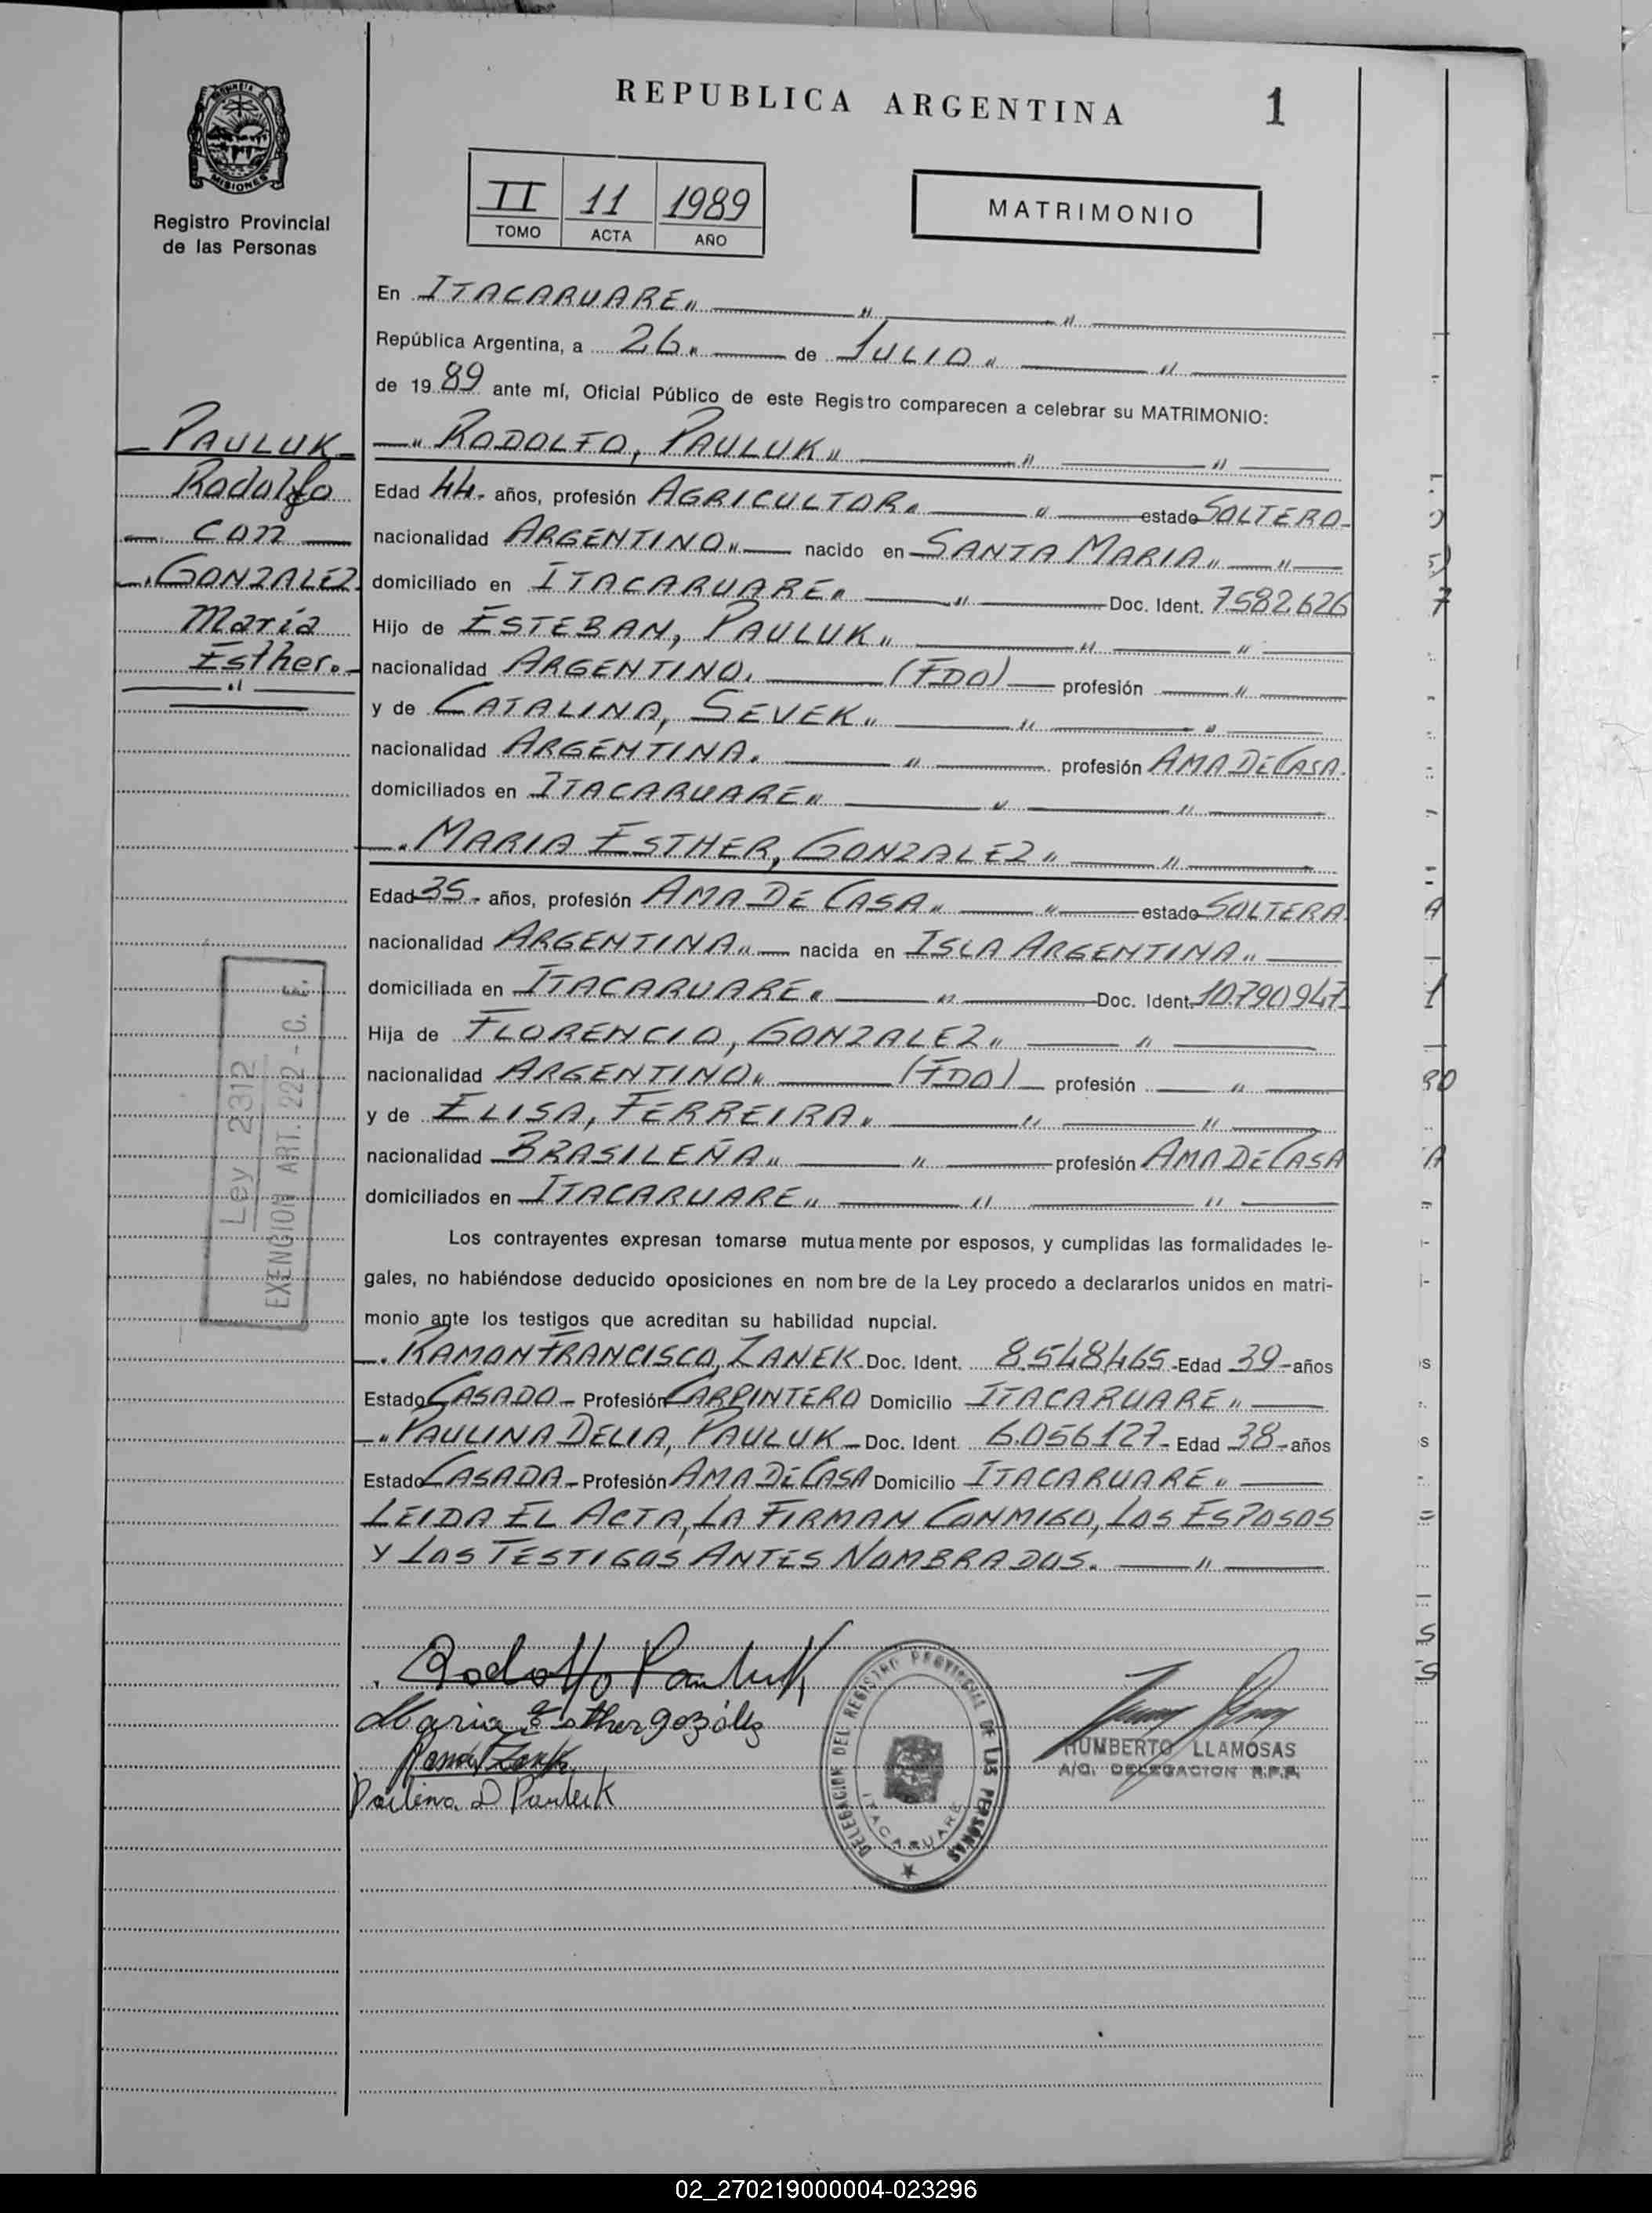 REPUBLICA ARGENTINA
1
MISIONES
Registro Provincial
de las Personas
II 11 1989
TOMO ACTA AÑO
MATRIMONIO
En ITACARUARE„ „ „
República Argentina, a 26„ de JULIO„ „
de 1989 ante mí, Oficial Público de este Registro comparecen a celebrar su MATRIMONIO:
PAULUK
Rodolfo
con
GONZALEZ
María
Esther.
„ RODOLFO, PAULUK„ „ „
Edad 44- años, profesión AGRICULTOR„ „ estado SOLTERO-
nacionalidad ARGENTINO„ nacido en SANTA MARIA„ „
domiciliado en ITACARUARE„ „ Doc. Ident. 7.582.626
Hijo de ESTEBAN, PAULUK„ „ „
nacionalidad ARGENTINO. (FDO) profesión „
y de CATALINA, SEVEK„ „ „
nacionalidad ARGENTINA. „ profesión AMA DE CASA.
domiciliados en ITACARUARE„ „ „
. MARIA ESTHER, GONZALEZ„ „
Edad 35- años, profesión AMA DE CASA„ „ estado SOLTERA.
nacionalidad ARGENTINA„ nacida en ISLA ARGENTINA„
domiciliada en ITACARUARE„ „ Doc. Ident. 10.790.947
Hija de FLORENCIO, GONZALEZ„ „
nacionalidad ARGENTINO„ (FDO) profesión „
y de ELISA, FERREIRA„ „ „
nacionalidad BRASILEÑA„ „ profesión AMA DE CASA
domiciliados en ITACARUARE„ „ „
Ley 2312
EXENCION ART. 222 - C. F.
Los contrayentes expresan tomarse mutuamente por esposos, y cumplidas las formalidades le-
gales, no habiéndose deducido oposiciones en nombre de la Ley procedo a declararlos unidos en matri-
monio ante los testigos que acreditan su habilidad nupcial.
. RAMON FRANCISCO, ZANEK. Doc. Ident. 8.548.465-Edad 39-años
Estado CASADO- Profesión CARPINTERO Domicilio ITACARUARE„
„ PAULINA DELIA, PAULUK- Doc. Ident. 6.056.127- Edad 38-años
Estado CASADA- Profesión AMA DE CASA Domicilio ITACARUARE„
LEIDA EL ACTA, LA FIRMAN CONMIGO, LOS ESPOSOS
Y LOS TESTIGOS ANTES NOMBRADOS. „
Rodolfo Pauluk
Maria Esther gozález
Paulina D Pauluk
DELEGACION DEL REGISTRO PROVINCIAL DE LAS PERSONAS
ITACARUARE
HUMBERTO LLAMOSAS
A/C. DELEGACION R.P.P.
02_270219000004-023296